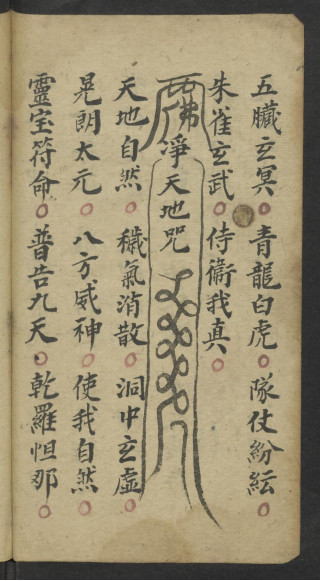 五臟玄冥○青龍白虎○隊仗紛紜○
朱雀玄武○侍衞我真○
佛淨天地咒
天地自然○穢氣消散○洞中玄虛○
晃朗太元○八方威神○使我自然○
靈宝符命○普告九天、乾羅怛那○